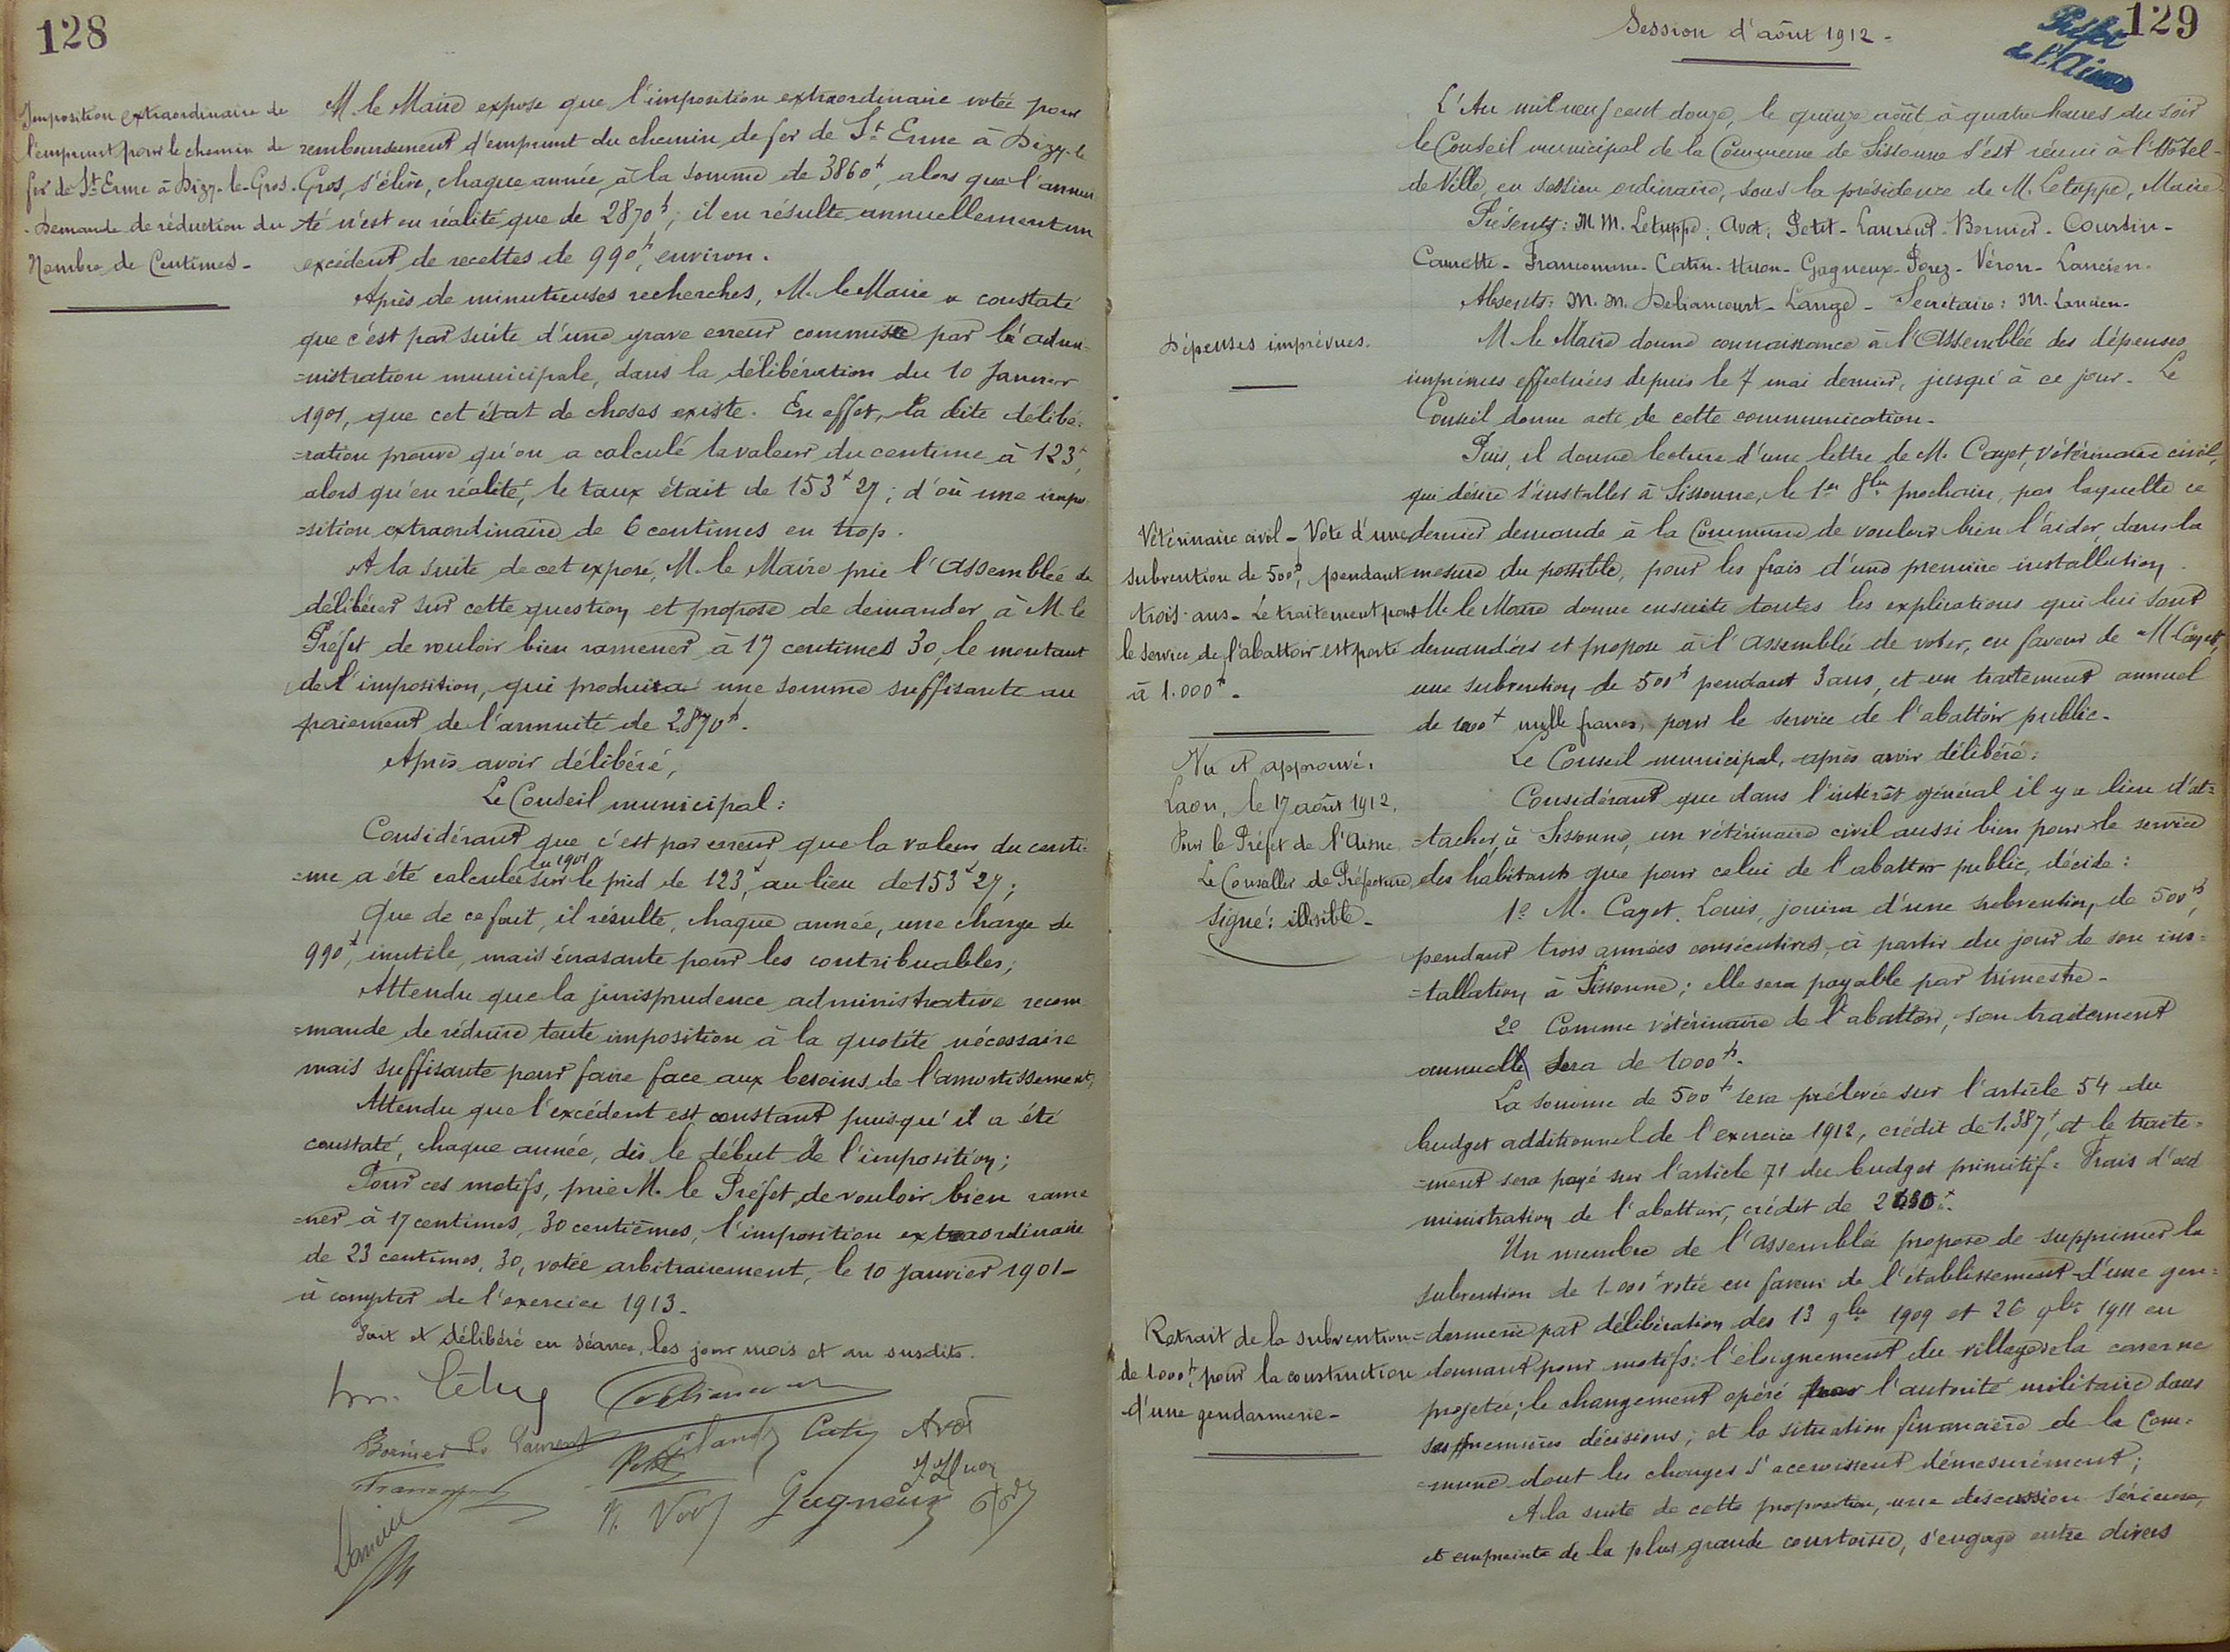 128
Imposition extraordinaire de
l'emprunt pour le chemin de
fer de St Erme à Dizy-le-Gros.
- Demande de réduction du
Nombre de Centimes -
M. le Maire expose que l'imposition extraordinaire votée pour
remboursement d'emprunt du chemin de fer de St Erme à Dizy-le
Gros, s'élève, chaque année, à la somme de 3860f, alors que l'annui
té n'est en réalité que de 2870f; il en résulte annuellement un
excédent de recettes de 990f, environ.
Après de minutieuses recherches, M. le Maire a constaté
que c'est par suite d'une grave erreur commise par l'admi-
=nistration municipale, dans la délibération du 10 Janvier
1901, que cet état de choses existe. En effet, la dite délibé-
=ration prouve qu'on a calculé la valeur du centime à 123f,
alors qu'en réalité, le taux était de 153f 27; d'où une impo-
=sition extraordinaire de 6 centimes en trop.
A la suite de cet exposé, M. le Maire prie l'Assemblée de
délibérer sur cette question et propose de demander à M. le
Préfet de vouloir bien ramener à 17 centimes 30, le montant
de l'imposition, qui produira une somme suffisante au
paiement de l'annuité de 2870f.
Après avoir délibéré,
Le Conseil municipal:
Considérant que c'est par erreur que la valeur du centi-
=me a été calculée en 1901 sur le pied de 123f, au lieu de 153f 27;
Que de ce fait, il résulte, chaque année, une charge de
990f, inutile, mais écrasante pour les contribuables;
Attendu que la jurisprudence administrative recom
=mande de réduire toute imposition à la quotité nécessaire
mais suffisante pour faire face aux besoins de l'amortissement;
Attendu que l'excédent est constant puisqu'il a été
constaté, chaque année, dès le début de l'imposition;
Pour ces motifs, prie M. le Préfet de vouloir bien rame
=ner à 17 centimes, 30 centièmes, l'imposition extraordinaire
de 23 centimes, 30, votée arbitrairement, le 10 Janvier 1901 -
à compter de l'exercice 1913.
Fait et délibéré en séance, les jour mois et an susdits.
Bornier Laurent Petit Catin Avot
J. Huon
Gagneux
Lancien
129
Préfet
de l'Aisne
Session d'août 1912 -
L'An mil neuf cent douze, le quinze août, à quatre heures du soir
le Conseil municipal de la Commune de Sissonne s'est réuni à l'Hôtel-
de Ville, en session ordinaire, sous la présidence de M. Letuppe, Maire.
Présents: M.M. Letuppe, Avot, Petit - Laurent - Bornier - Coursin -
Caurette - Franconme - Catin - Huon - Gagneux - Porez - Véron - Lancien.
Absents: M.M. Deliancourt - Langé - Secrétaire: M. Lancien -
Dépenses imprévues.
M. le Maire donne connaissance à l'Assemblée des dépenses
imprévues effectuées depuis le 7 mai dernier, jusqu'à ce jour. Le
Conseil donne acte de cette communication.
Puis, il donne lecture d'une lettre de M. Cayet, Vétérinaire civil,
qui désire s'installer à Sissonne, le 1er 8bre prochain, par laquelle ce
dernier demande à la Commune de vouloir bien l'aider, dans la
mesure du possible, pour les frais d'une première installation.
M. le Maire donne ensuite toutes les explications qui lui sont
demandées et propose à l'assemblée de voter, en faveur de M. Cayet,
une subvention de 500f pendant 3 ans, et un traitement annuel
de 1000f mille francs, pour le service de l'abattoir public.
Vétérinaire civil - Vote d'une
subvention de 500f, pendant
trois ans - Le traitement pour
le service de l'abattoir est porté
à 1.000f -
Vu et approuvé:
Laon, le 17 août 1912.
Pour le Préfet de l'Aisne,
Le Conseiller de Préfecture,
Signé: illisible -
Le Conseil municipal, après avoir délibéré:
Considérant que dans l'intérêt général il y a lieu d'at=
=tacher, à Sissonne, un vétérinaire civil aussi bien pour le service
des habitants que pour celui de l'abattoir public, décide:
1o M. Cayet. Louis, jouira d'une subvention, de 500f,
pendant trois années consécutives, à partir du jour de son ins=
=tallation à Sissonne; elle sera payable par trimestre -
2o Comme vétérinaire de l'abattoir, son traitement
annuel sera de 1000f.
La somme de 500f sera prélevée sur l'article 54 du
budget additionnel de l'exercice 1912, crédit de 1.387f, et le traite=
=ment sera payé sur l'article 71 du budget primitif: Frais d'ad
ministration de l'abattoir, crédit de
Un membre de l'Assemblée propose de supprimer la
subvention de 1.000f votée en faveur de l'établissement d'une gen=
=darmerie par délibération des 13 9bre 1909 et 26 9bre 1911 en
donnant pour motifs: l'éloignement du village de la caserne
projetée; le changement opéré par l'autorité militaire dans
ses premières décisions; et la situation financière de la Com=
=mune dont les charges s'accroissent démesurément;
Retrait de la subvention
de 1000f, pour la construction
d'une gendarmerie -
A la suite de cette proposition, une discussion sérieuse,
et empreinte de la plus grande courtoisie, s'engage entre divers